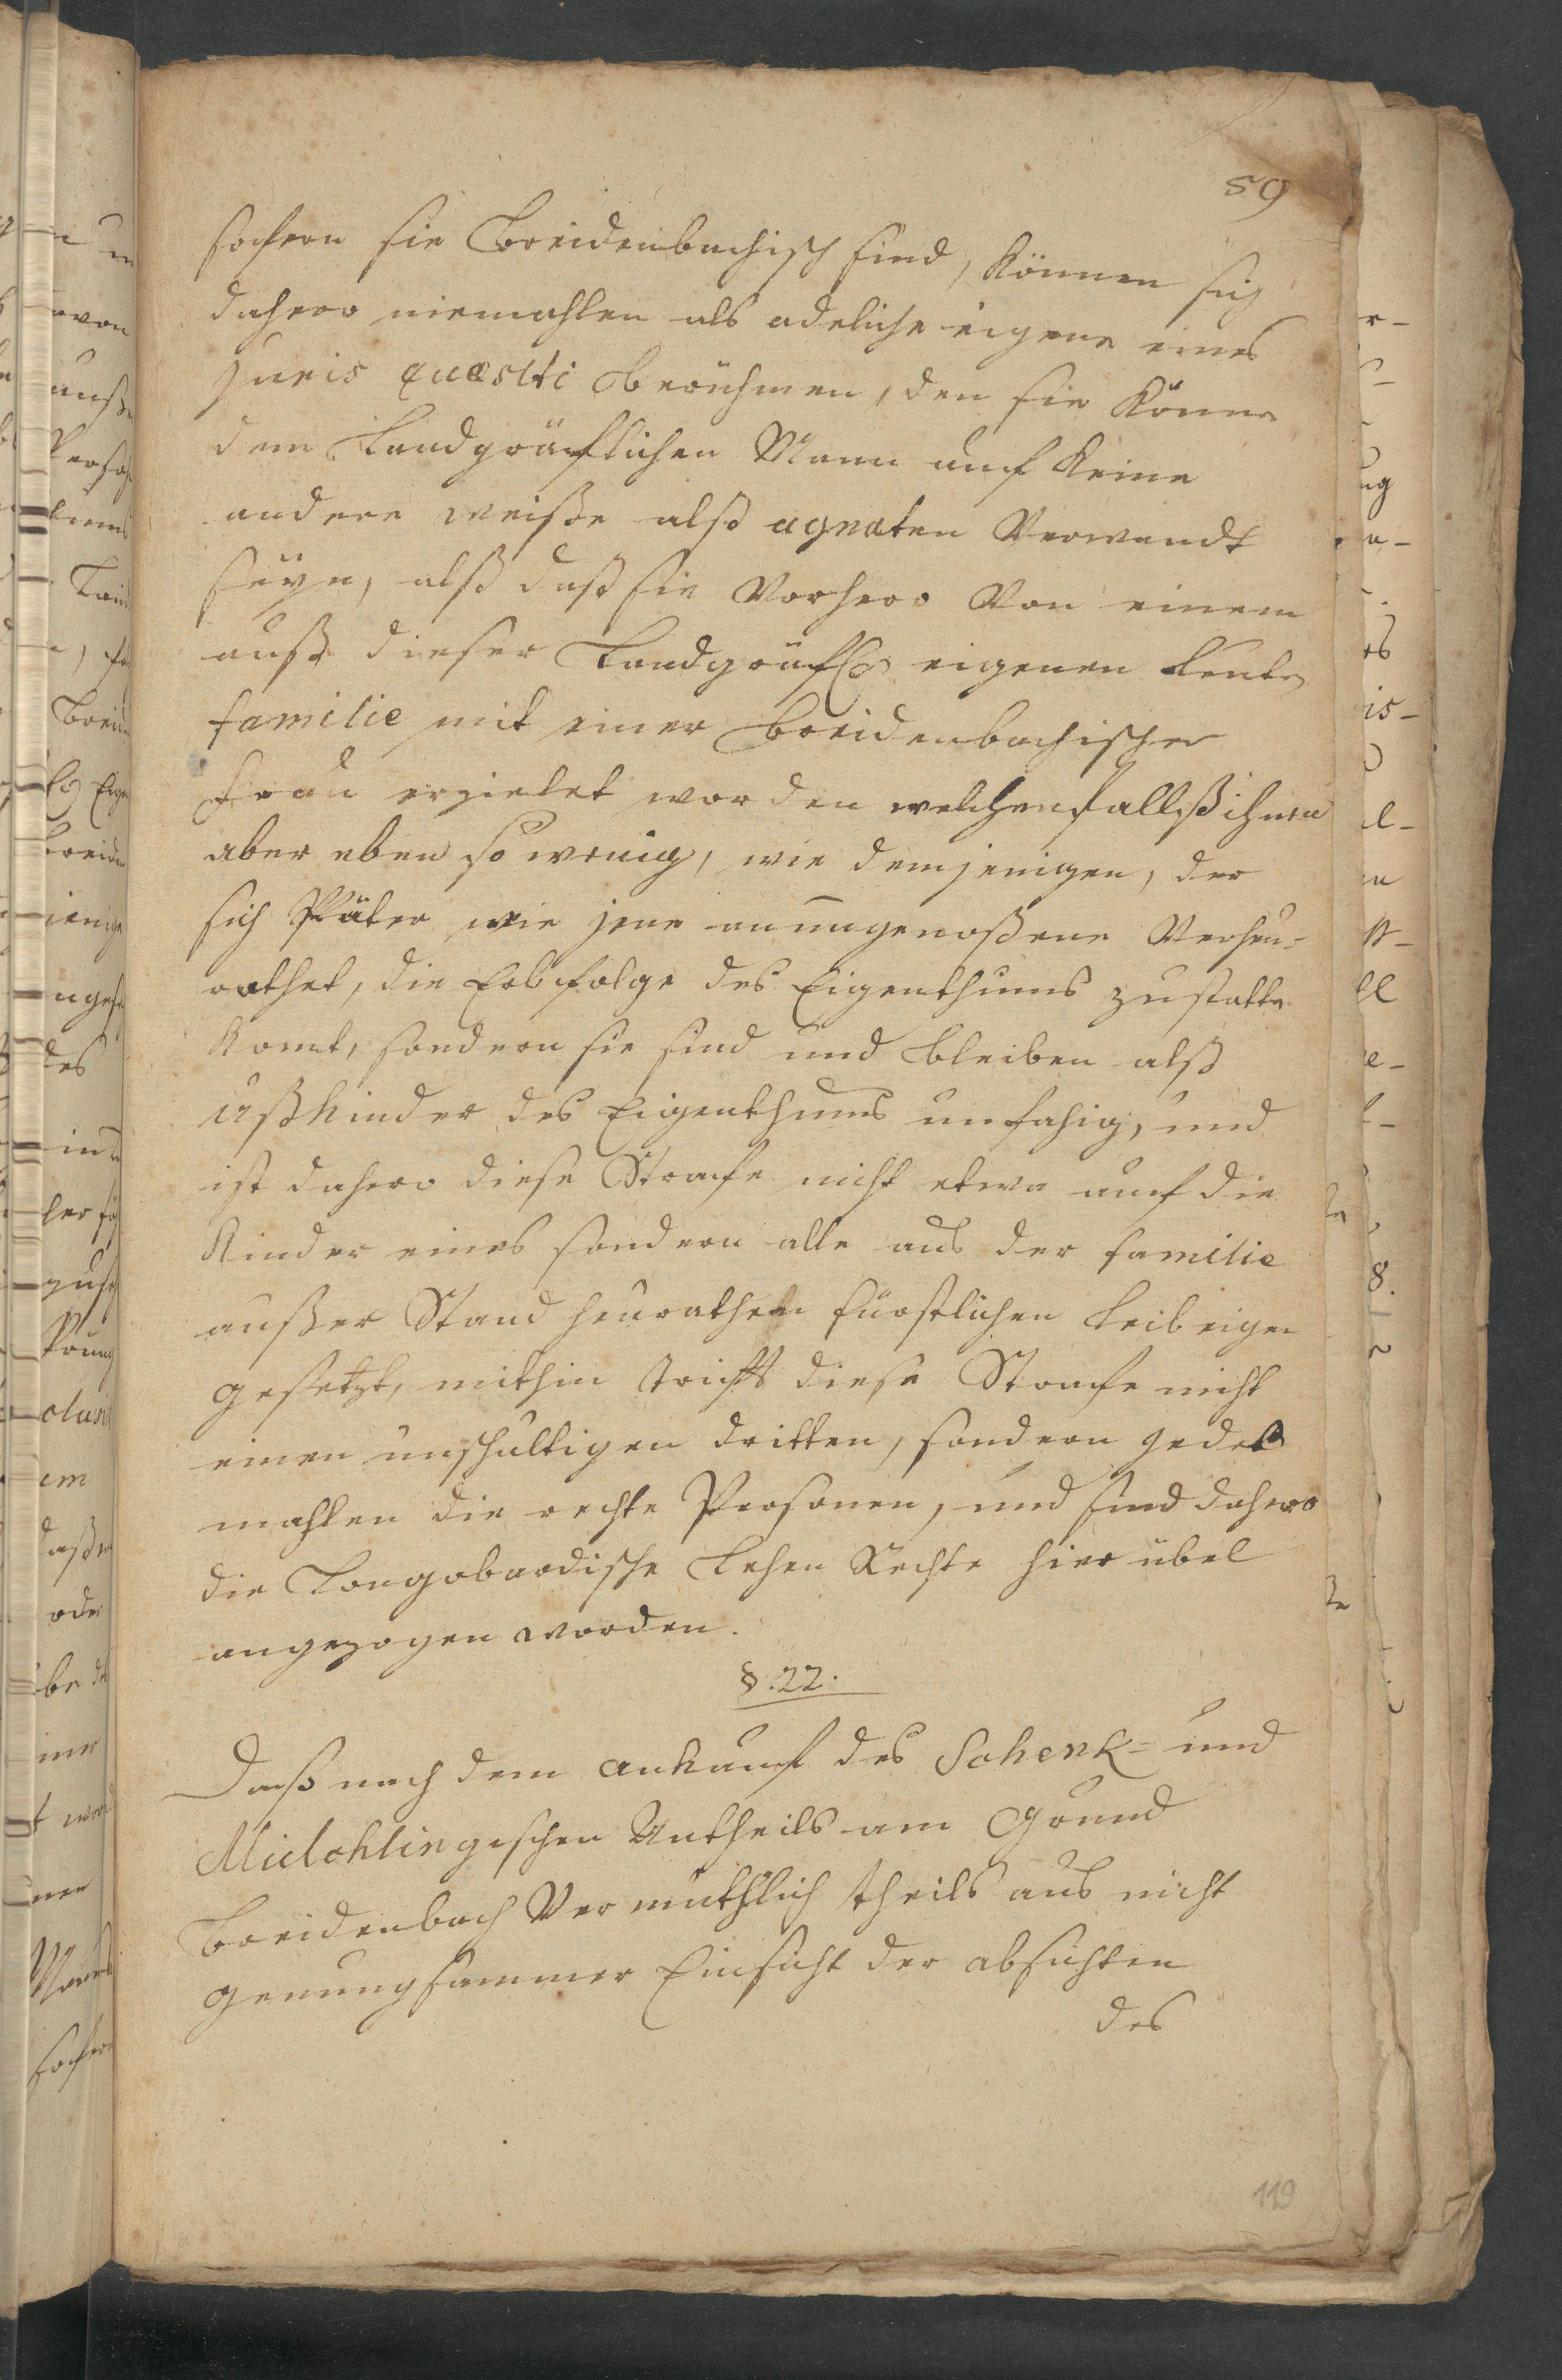 59
sofern sie Breidenbachisch sind, können sich
dahero niemahlen als adeliche eigene eines
juris quæsiti berühmen, den sie könne
dem Landgräflichen Mann auf keine
andere weiße alß agnaten Verwandt
seyn, alß daß sie Vorhero Von einem
auß dieser Landgräfl. eigenen Leute
familie mit einer Breidenbachischen
Frau erzielet worden welchenfallß ihnen
aber eben so wenig, wie demjenigen, der
sich später wie jene an ungenoßene Verheu-
rathet, die Erbfolge des Eigenthums zustatte
komt, sondern sie sind und bleiben alß
Ußkinder des Eigenthums unfahig, und
ist dahero diese Strafe nicht etwa auf die
Kinder eines sondern alle aus der familie
außer Stand heurathen fürstlichen Leibeigen
gesetzt, mithin trifft diese Strafe nicht
einen unschultigen dritten, sondern jedes
mahlen die rechte Personen, und sind dahero
die Longobardische Lehen Rechte hier übel
angezogen worden.
§. 22.
Daß nach dem ankauf des Schenk- und
Milchlingischen Antheils am Grund
Breidenbach Vermuthlich theils aus nicht
genungsammer Einsicht der absichten
des
119